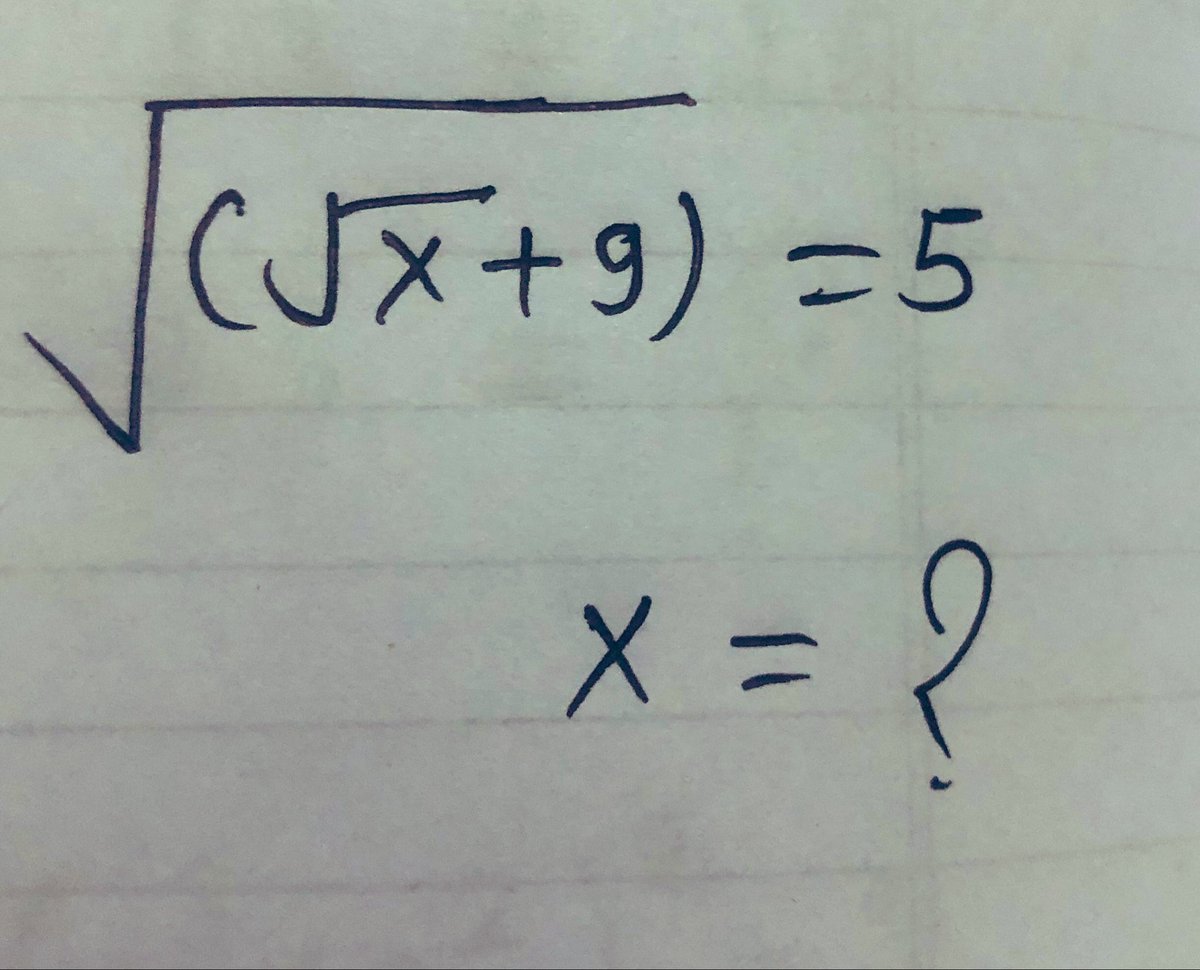 √(√x+9) = 5
x = ?